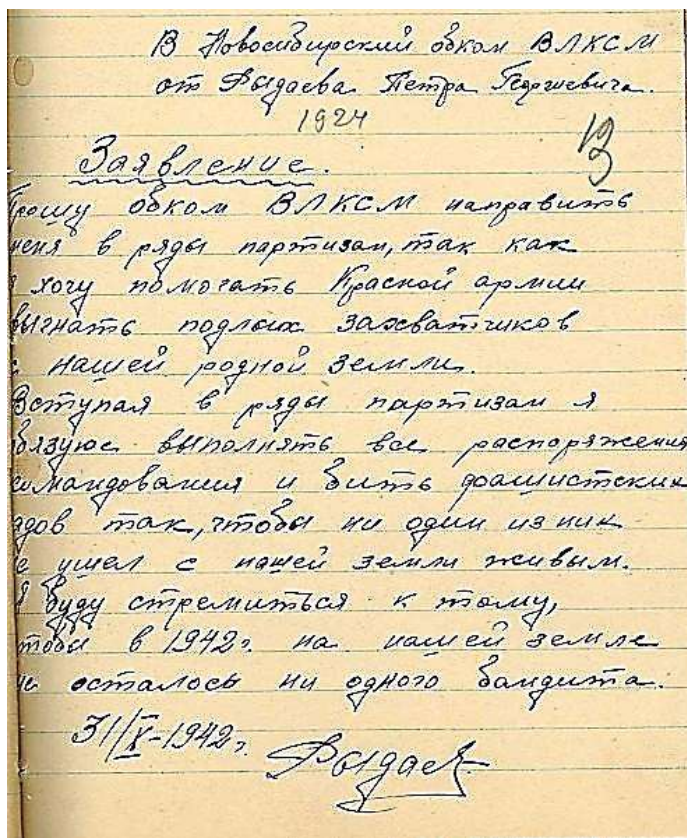 В Новосибирский обком ВЛКСМ
от Рыдаева Петра Георгиевича.
1924
13
Заявление.
Прошу обком ВЛКСМ направить
меня в ряды партизан, так как
я хочу помогать Красной армии
выгнать подлых захватчиков
с нашей родной земли.
Вступая в ряды партизан я
обязуюс выполнять все распоряжения
командования и бить фашистских
гадов так, чтобы ни один из них
не ушел с нашей земли живым.
Я буду стремиться к тому,
чтобы в 1942г. на нашей земле
не осталось ни одного бандита.
31/X-1942г.
Рыдаев